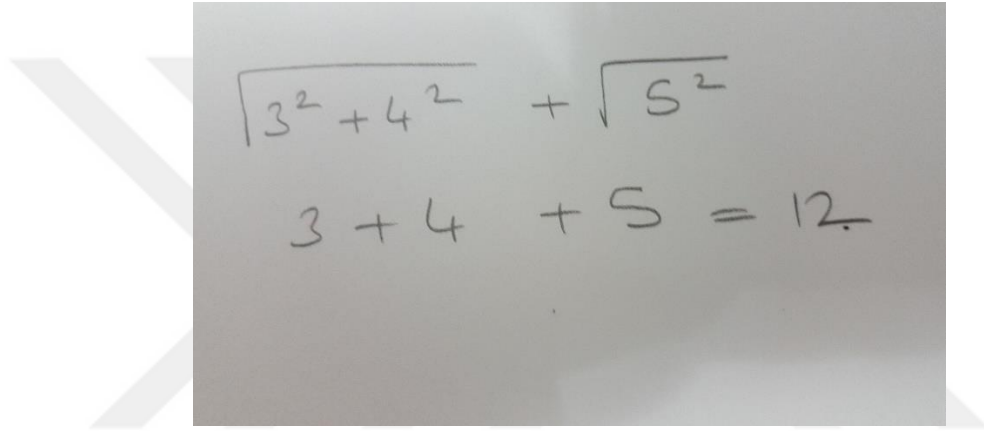 √(3² + 4²) + √(5²)
3 + 4 + 5 = 12.